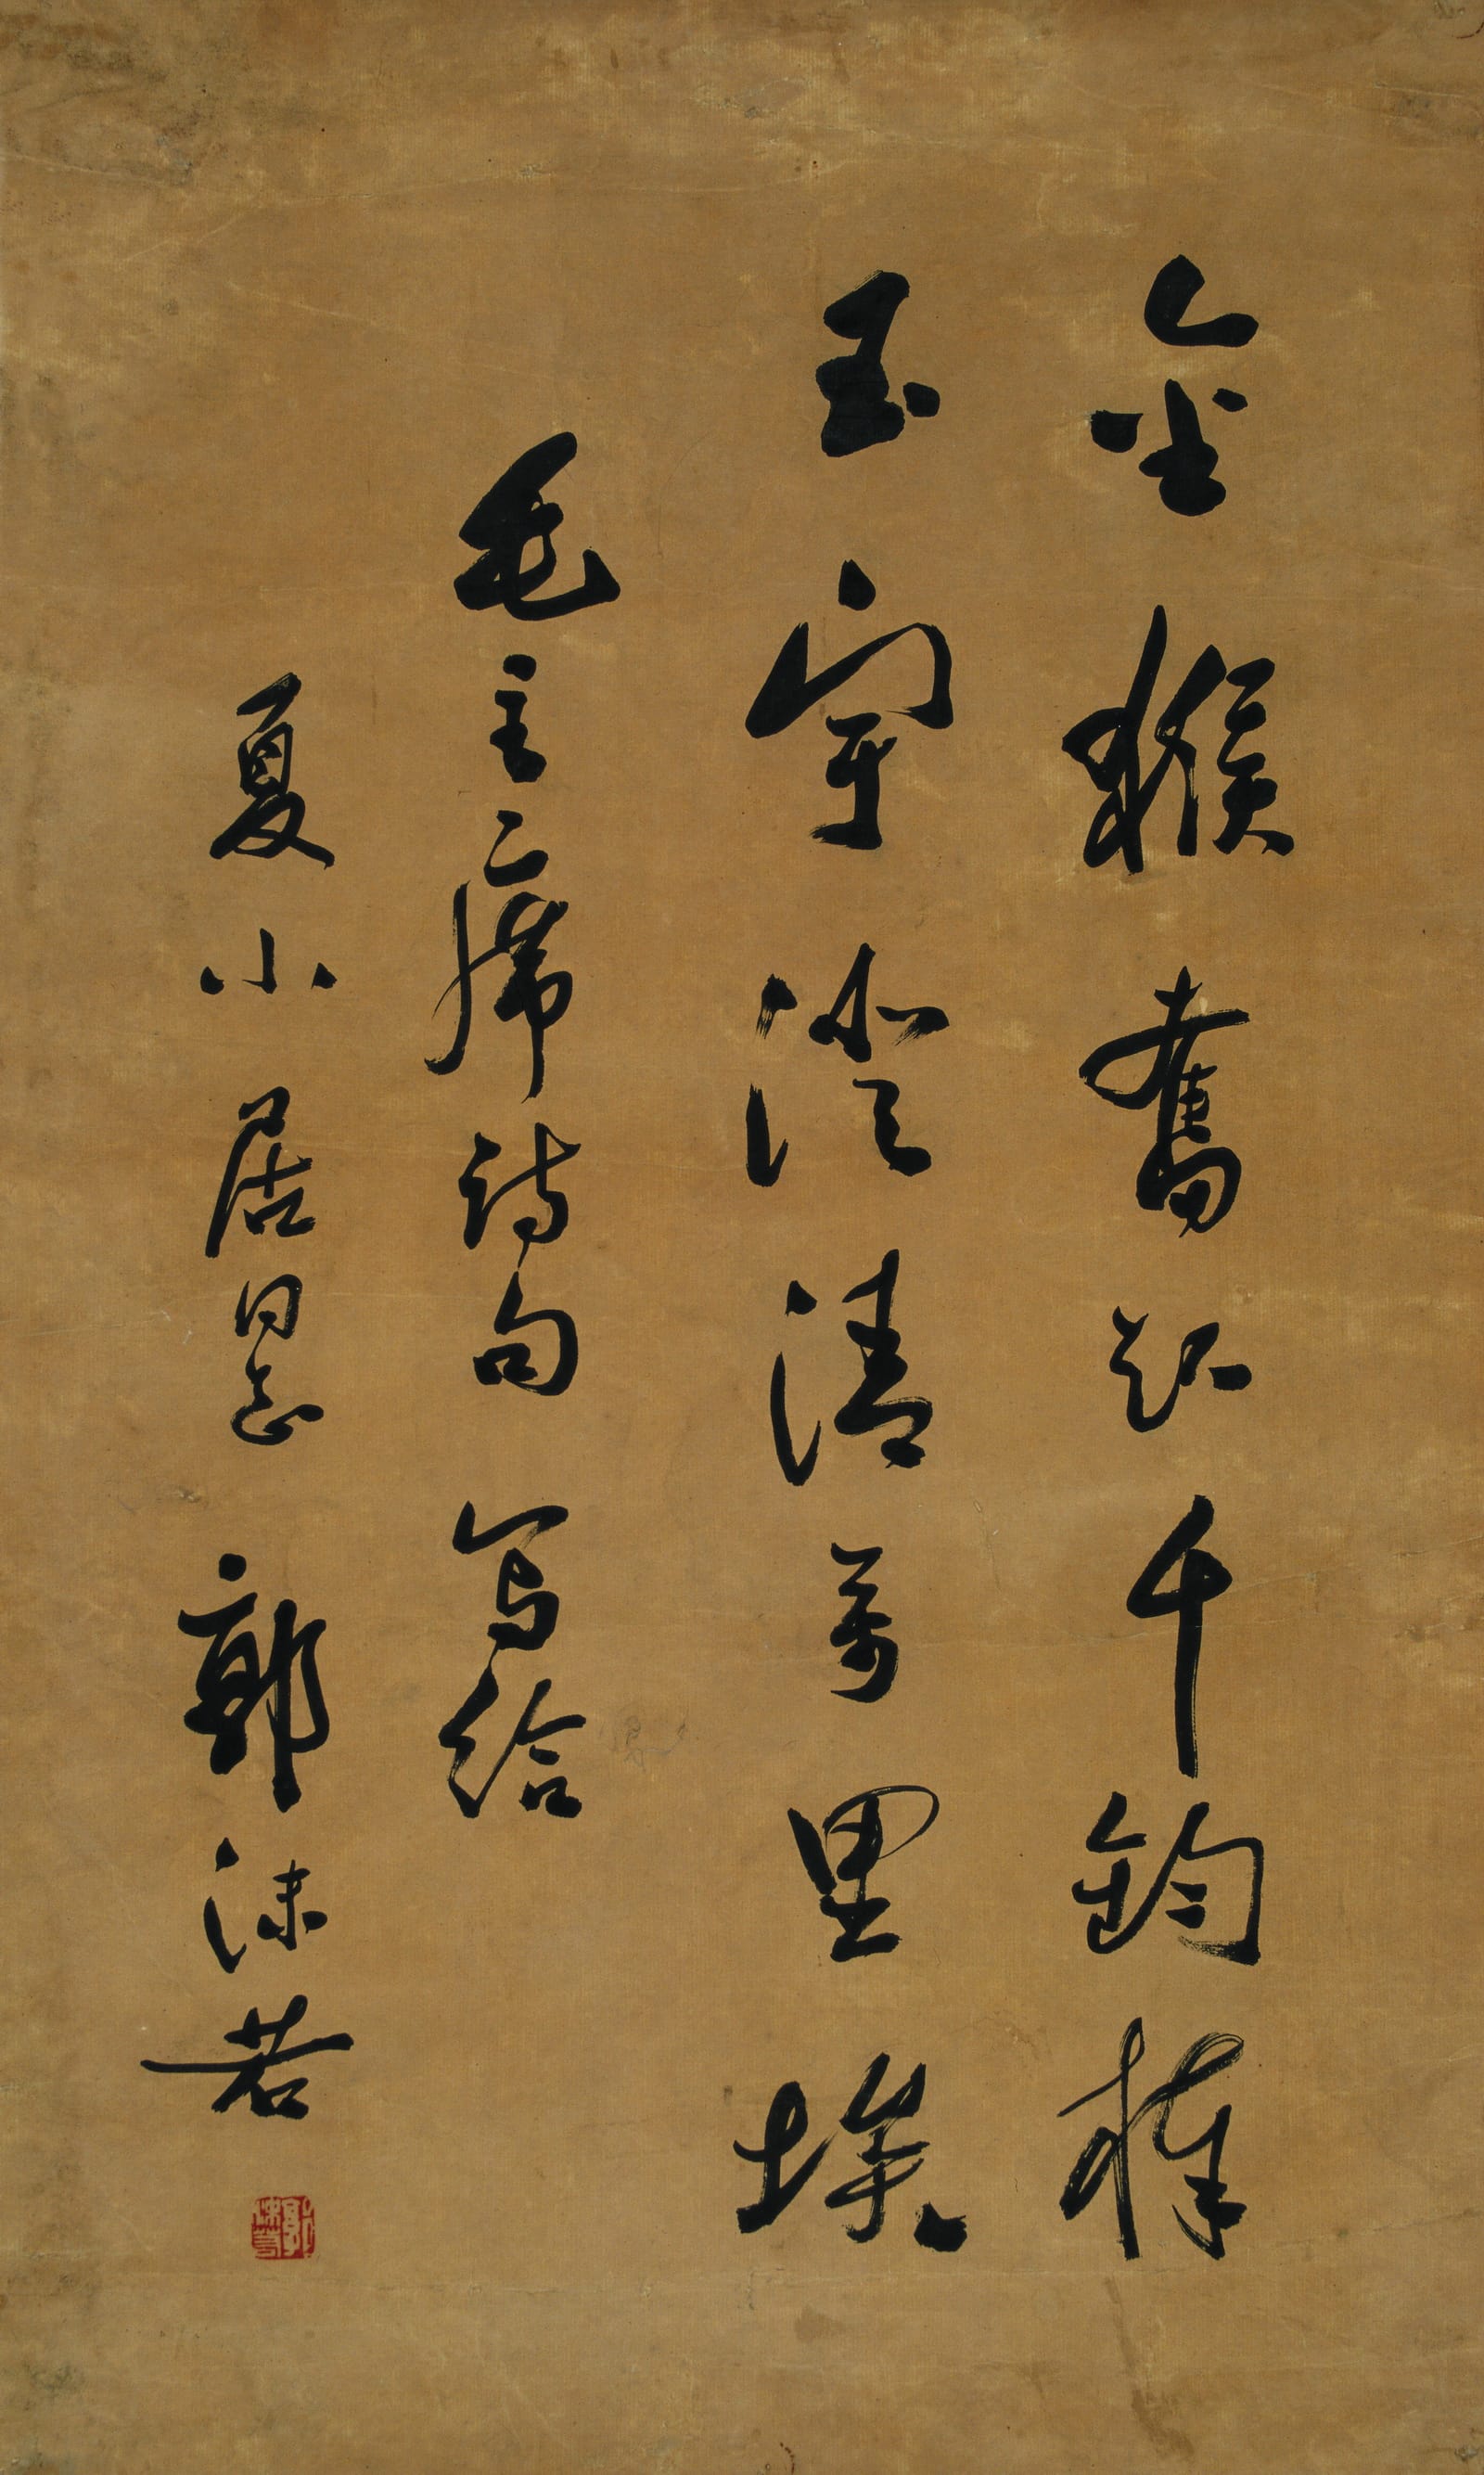 金猴奮起千鈞棒
玉宇澄清萬里埃
毛主席詩句 写給
夏小居同志 郭沫若